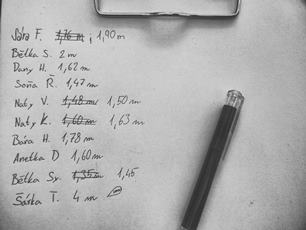 Sára F. 1,76 m ; 1,90 m
Bětka S. 2 m
Dany H. 1,62 m
Soňa Ř. 1,47 m
Naty V. 1,48 m 1,50 m
Naty K. 1,60 m 1,63 m
Bára H. 1,78 m
Anetka D 1,60 m
Bětka Sr. 1,35 m 1,45
Šárka T. 4 m